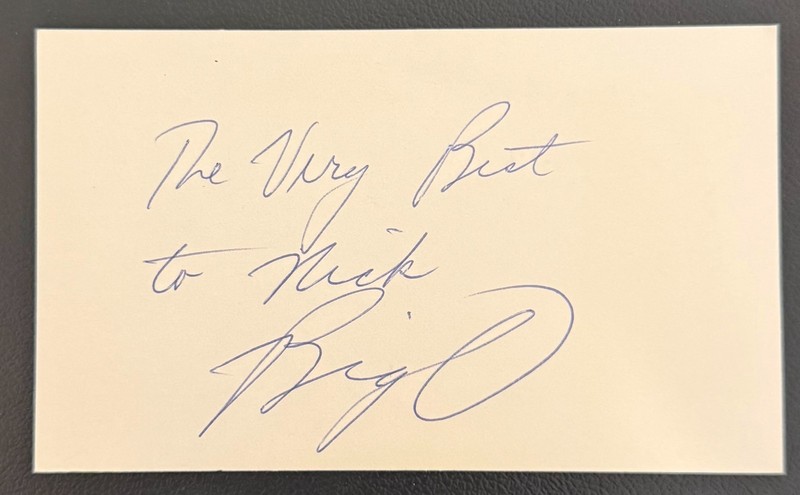 The Very Best
to Nick
Big O